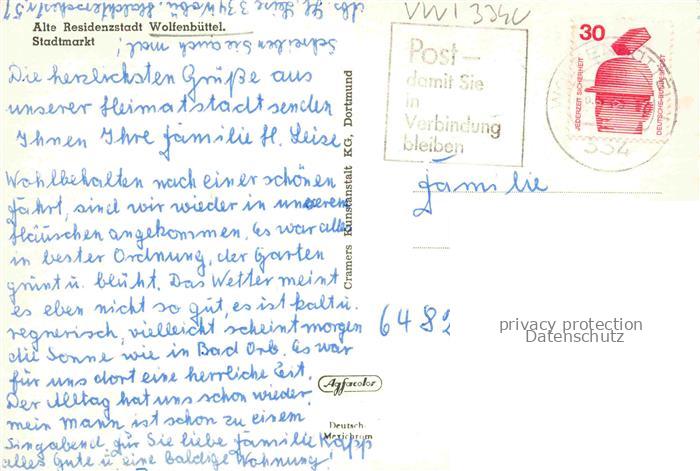 Alte Residenzstadt Wolfenbüttel.
Stadtmarkt
Schreiben Sie auch mal!
Die herzlichsten Grüße aus
unserer Heimatstadt senden
Ihnen Ihre Familie H. Leise
Wohlbehalten nach einer schönen
Fahrt, sind wir wieder in unserem
Häuschen angekommen. Es war alles
in bester Ordnung, der Garten
grünt u. blüht. Das Wetter meint
es eben nicht so gut, es ist kalt u.
regnerisch, vielleicht scheint morgen
die Sonne wie in Bad Orb. Es war
für uns dort eine herrliche Zeit.
Der Alltag hat uns schon wieder.
mein Mann ist schon zu einem
Singabend für Sie liebe Familie Kapp
alles Gute u. eine baldige Wohnung!
Cramers Kunstanstalt KG, Dortmund
Agfacolor
Deutsch-
Mexichrom
VWI 334U
Post –
damit Sie
in
Verbindung
bleiben
30
JEDERZEIT SICHERHEIT
DEUTSCHE BUNDESPOST
334
Familie
6482
privacy protection
Datenschutz